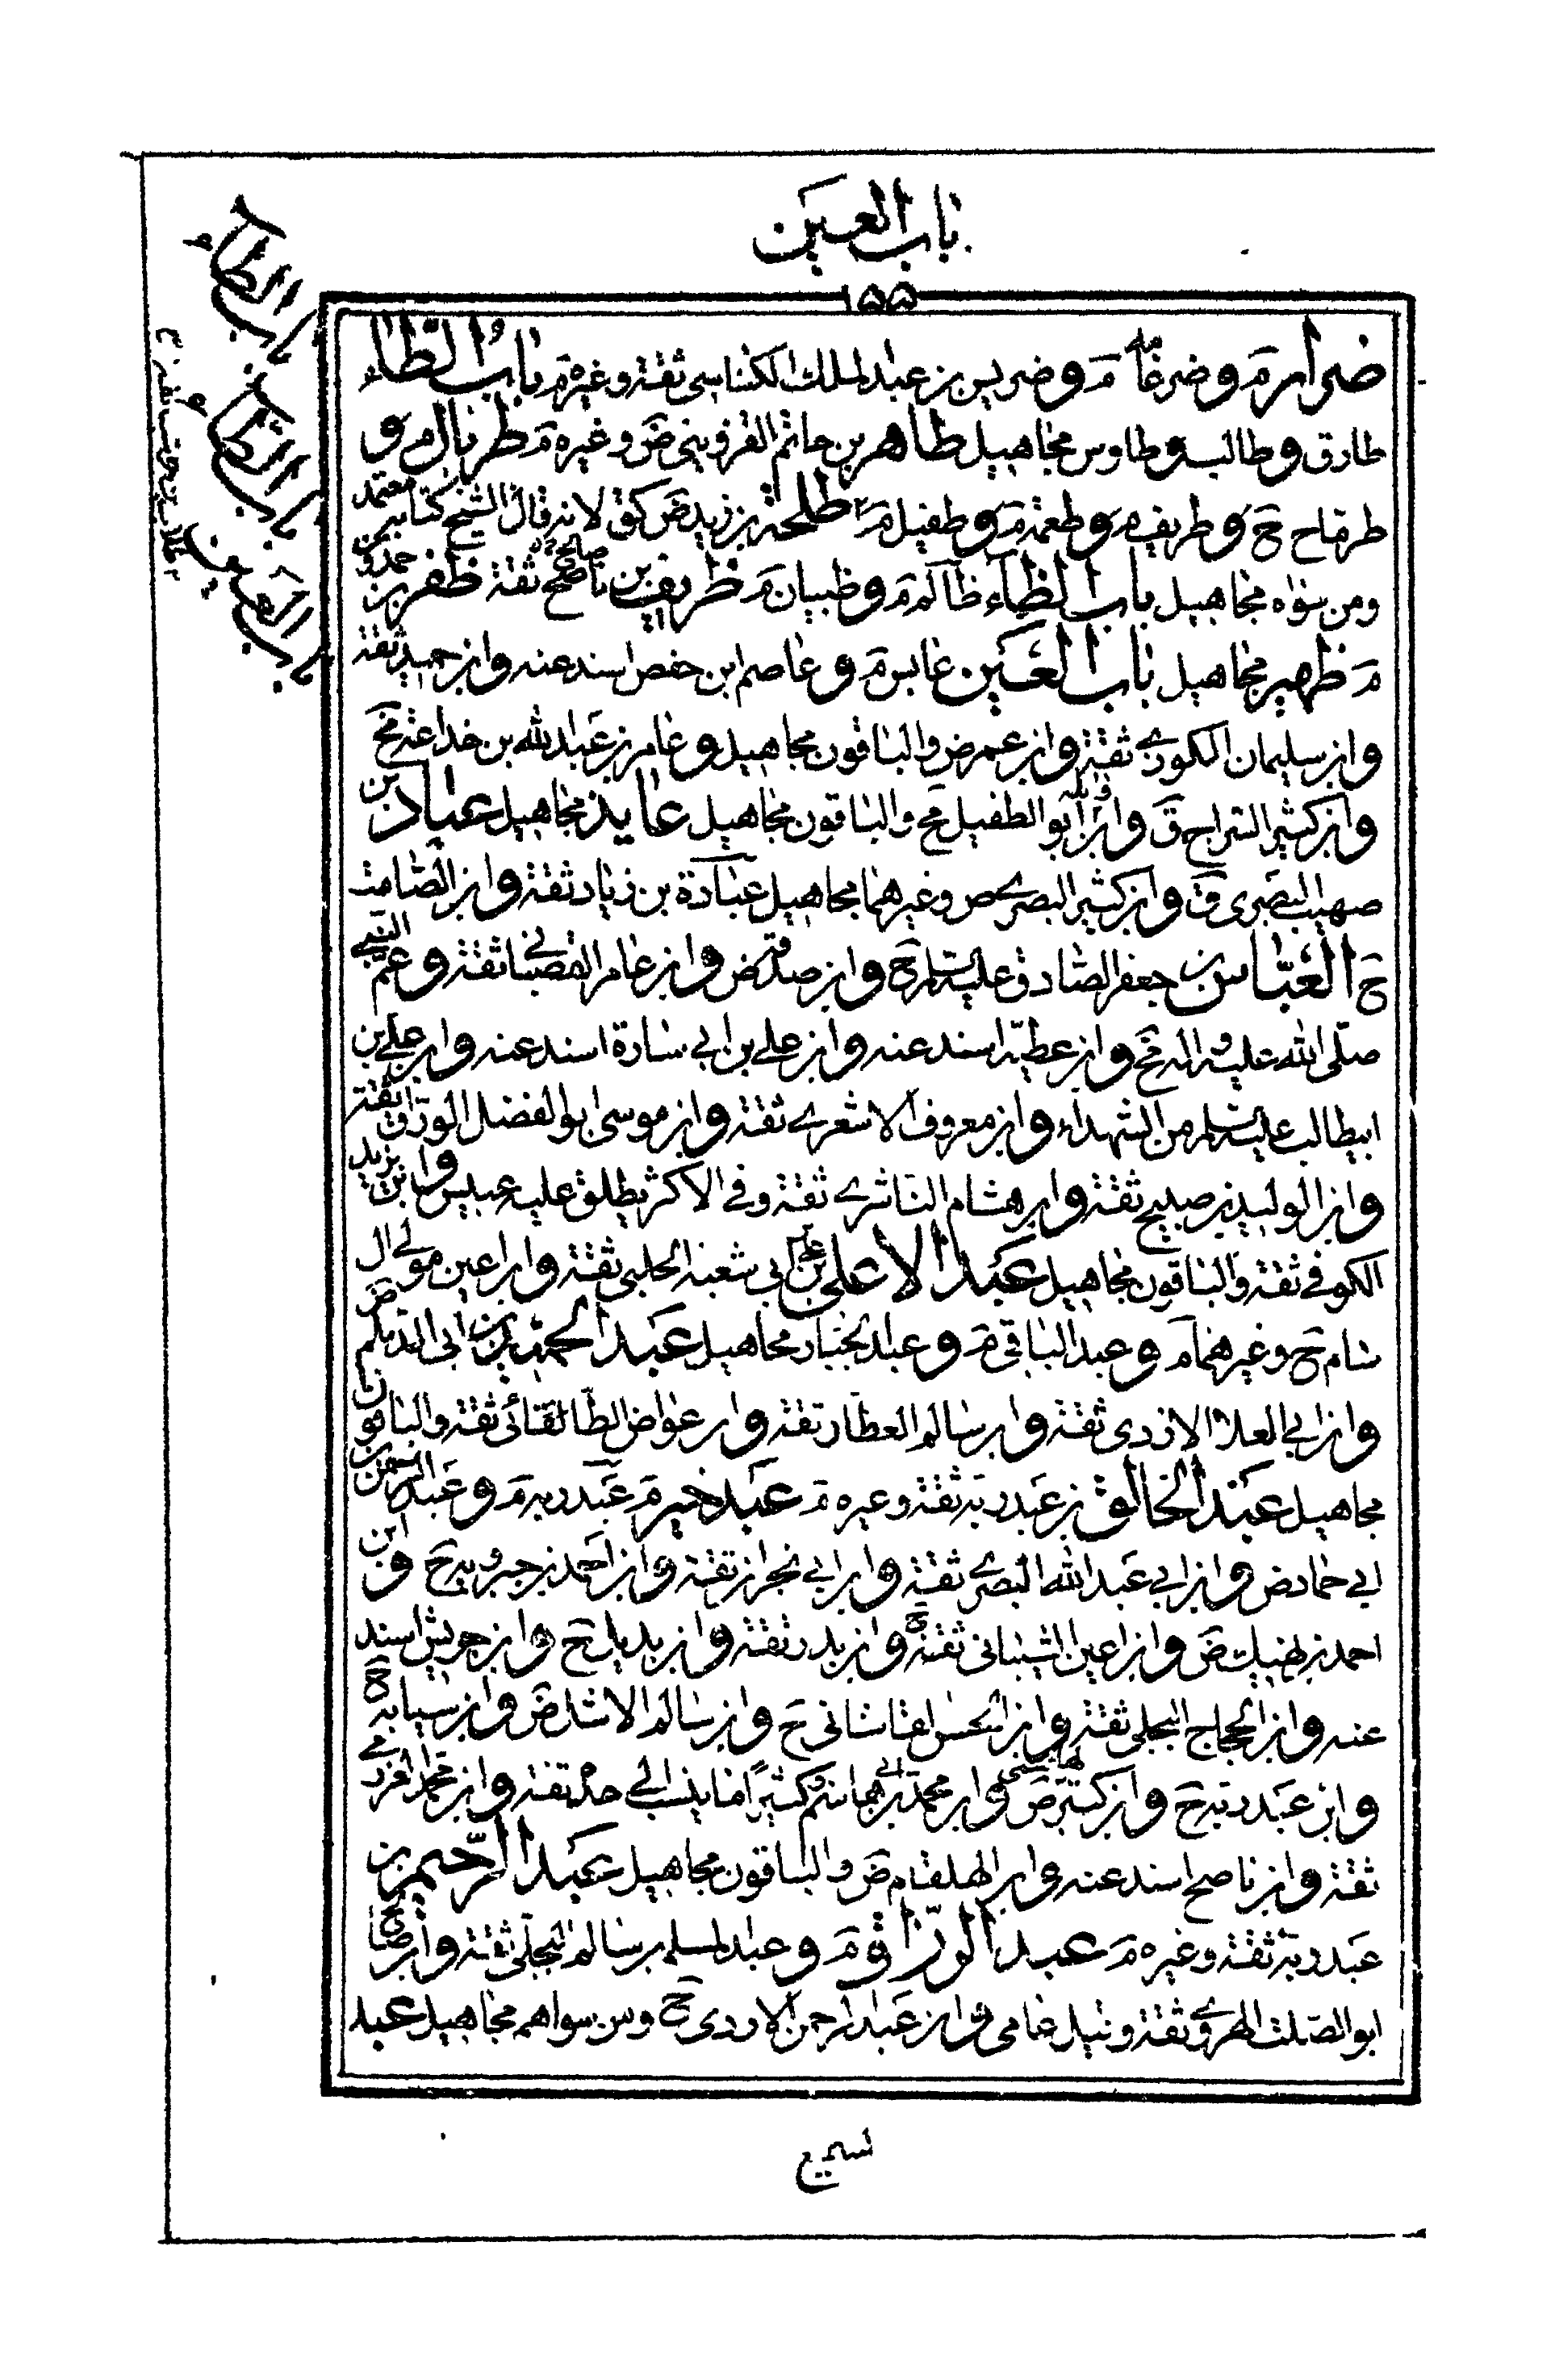 باب العين
١٥٥
ضرار م و ضرغامه م و ضريس بن عبد الملك الكناسى ثقة وغيره م باب الطاء
طارق و طالب و طاوس مجاهيل طاهر بن حاتم القزوينى ض و غيره م طربال م و
طرماح ح و طريف م و طعمة م و طفيل م طلحة بن زيد ض كق لانه قال الشيخ كتابه معتمد
ومن سواه مجاهيل باب الظاء ظالم م و ظبيان م ظريف بن ناصح ثقة ظفر بن حمدون
م ظهير مجاهيل باب العين عابس م و عاصم ابن حفص اسند عنه و ابن حميد ثقة
و ابن سليمان الكوزى ثقة و ابن عمر ض والباقون مجاهيل و عامر بن عبد الله بن خداعة مح
و ابن كثير السراج ق و ابن واثله ابو الطفيل مح والباقون مجاهيل عايذ مجاهيل عباد بن
صهيب البصرى ق و ابن كثير البصرى ض وغيرهما مجاهيل عبادة بن زياد ثقة و ابن الصامت
ح العباس بن جعفر الصادق عليه السلم ح و ابن صدقة ض و ابن عامر القصبانى ثقة و عم النبى
صلى الله عليه واله مح و ابن عطية اسند عنه و ابن على بن ابى سارة اسند عنه و ابن على بن
ابيطالب عليه السلم من الشهداء و ابن معروف الاشعرى ثقة و ابن موسى ابو الفضل الوراق ثقة
و ابن الوليد بن صبيح ثقة و ابن هشام الناشرى ثقة وفى الاكثر يطلق عليه عبيس و ابن يزيد
الكوفى ثقة والباقون مجاهيل عبد الاعلى بن على بن ابى شعبة الحلبى ثقة و ابن اعين مولى ال
سام ح وغيرهما م و عبد الباقى م و عبد الجبار مجاهيل عبد الحميد بن ابى الديلم ض
و ابن ابى العلا الازدى ثقة و ابن سالم العطار ثقة و ابن عواض الطائى ثقة والباقون
مجاهيل عبد الخالق بن عبد ربه ثقة وغيره م عبد خير م عبد ربه م و عبد الرحمن بن
ابى حماد ض و ابن ابى عبد الله البصرى ثقة و ابن ابى نجران ثقة و ابن احمد بن جبرويه ح و ابن
احمد بن نهيك ض و ابن اعين الشيبانى ثقة و ابن بدر ثقة و ابن بديل ح و ابن جريش اسند
عنه و ابن الحجاج البجلى ثقة و ابن الحسن القاشانى ح و ابن سالم الاشل ض و ابن سيابه ح
و ابن عبد ربه ح و ابن كثير الهاشمى ض و ابن محمد بن ابى هاشم و كثيرا ما ينسب الى جده ثقة و ابن محمد العرزمى
ثقة و ابن ناصح اسند عنه و ابن الهلقام ض والباقون مجاهيل عبد الرحيم بن
عبد ربه ثقة وغيره م عبد الرزاق م و عبد السلم بن سالم البجلى ثقة و ابن صالح
ابو الصلت الهروى ثقة وقيل عامى و ابن عبد الرحمن الازدى ح ومن سواهم مجاهيل عبد
باب الطاء
باب الظاء
باب العين
سميع